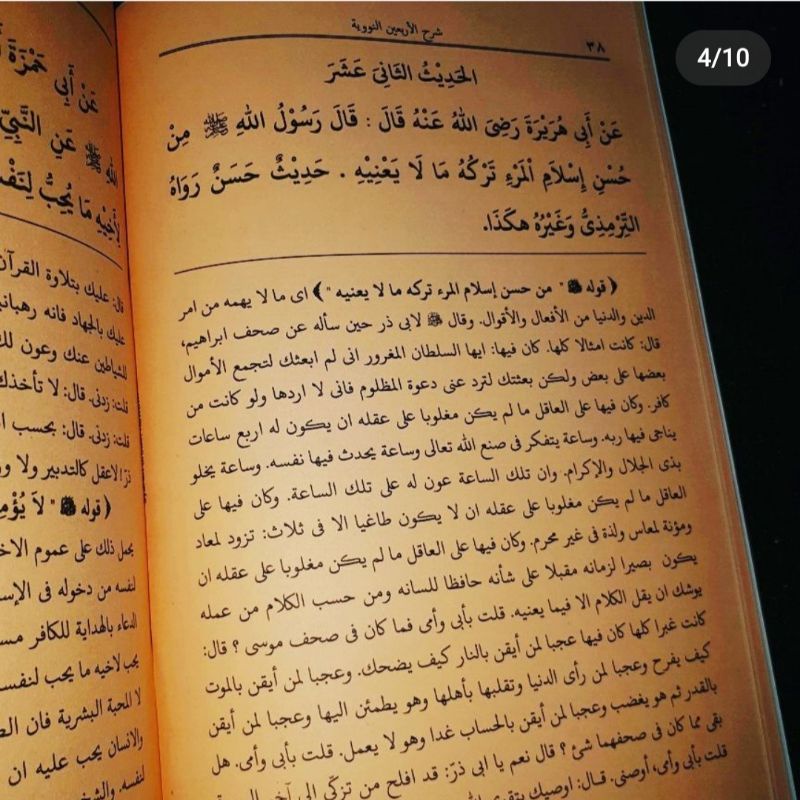 4/10
شرح الأربعين النووية
٣٨
الحَدِيْثُ الثَّانِىَ عَشَرَ
عَنْ أَبِى هُرَيْرَةَ رَضِىَ اللهُ عَنْهُ قَالَ : قَالَ رَسُوْلُ اللهِ ﷺ مِنْ
حُسْنِ إِسْلَامِ الْمَرْءِ تَرْكُهُ مَا لَا يَعْنِيْهِ . حَدِيْثٌ حَسَنٌ رَوَاهُ
التِّرْمِذِىُّ وَغَيْرُهُ هكَذَا.
( قوله ﷺ " من حسن إسلام المرء تركه ما لا يعنيه " ) اى ما لا يهمه من امر
الدين والدنيا من الأفعال والأقوال. وقال ﷺ لابى ذر حين سأله عن صحف ابراهيم،
قال: كانت امثالا كلها. كان فيها: ايها السلطان المغرور انى لم ابعثك لتجمع الأموال
بعضها على بعض ولكن بعثتك لترد عنى دعوة المظلوم فانى لا اردها ولو كانت من
كافر. وكان فيها على العاقل ما لم يكن مغلوبا على عقله ان يكون له اربع ساعات
يناجى فيها ربه. وساعة يتفكر فى صنع الله تعالى وساعة يحدث فيها نفسه. وساعة يخلو
بذى الجلال والإكرام. وان تلك الساعة عون له على تلك الساعة. وكان فيها على
العاقل ما لم يكن مغلوبا على عقله ان لا يكون طاغيا الا فى ثلاث: تزود لمعاد
ومؤنة لمعاس ولذة فى غير محرم. وكان فيها على العاقل ما لم يكن مغلوبا على عقله ان
يكون بصيرا لزمانه مقبلا على شأنه حافظا للسانه ومن حسب الكلام من عمله
يوشك ان يقل الكلام الا فيما يعنيه. قلت بأبى وأمى فما كان فى صحف موسى ؟ قال:
كانت غبرا كلها كان فيها عجبا لمن أيقن بالنار كيف يضحك. وعجبا لمن أيقن بالموت
كيف يفرح وعجبا لمن رأى الدنيا وتقلبها بأهلها وهو يطمئن اليها وعجبا لمن أيقن
بالقدر ثم هو يغضب وعجبا لمن أيقن بالحساب غدا وهو لا يعمل. قلت بأبى وأمى. هل
بقى مما كان فى صحفهما شئ ؟ قال نعم يا ابى ذرّ: قد افلح من تزكّى الى آخر
قلت بأبى وأمى، أوصنى. قال: اوصيك بتقوى
عَنْ أَبِى حَمْزَةَ
اللهِ ﷺ عَنِ النَّبِيِّ
لِأَخِيْهِ مَا يُحِبُّ لِنَفْ
قال: عليك بتلاوة القرآن
عليك بالجهاد فانه رهبانية
للشياطين عنك وعون لك
قلت: زدنى. قال: لا تأخذك
قلت: زدنى. قال: بحسب ا
ذرّ! لاعقل كالتدبير ولا ور
( قوله ﷺ " لَا يُؤْمِ
يحمل ذلك على عموم الاخ
لنفسه من دخوله فى الإس
الدعاء بالهداية للكافر مس
يحب لاخيه ما يحب لنفسه
لا المحبة البشرية فان الط
والانسان يحب عليه ان
لنفسه. والشخ